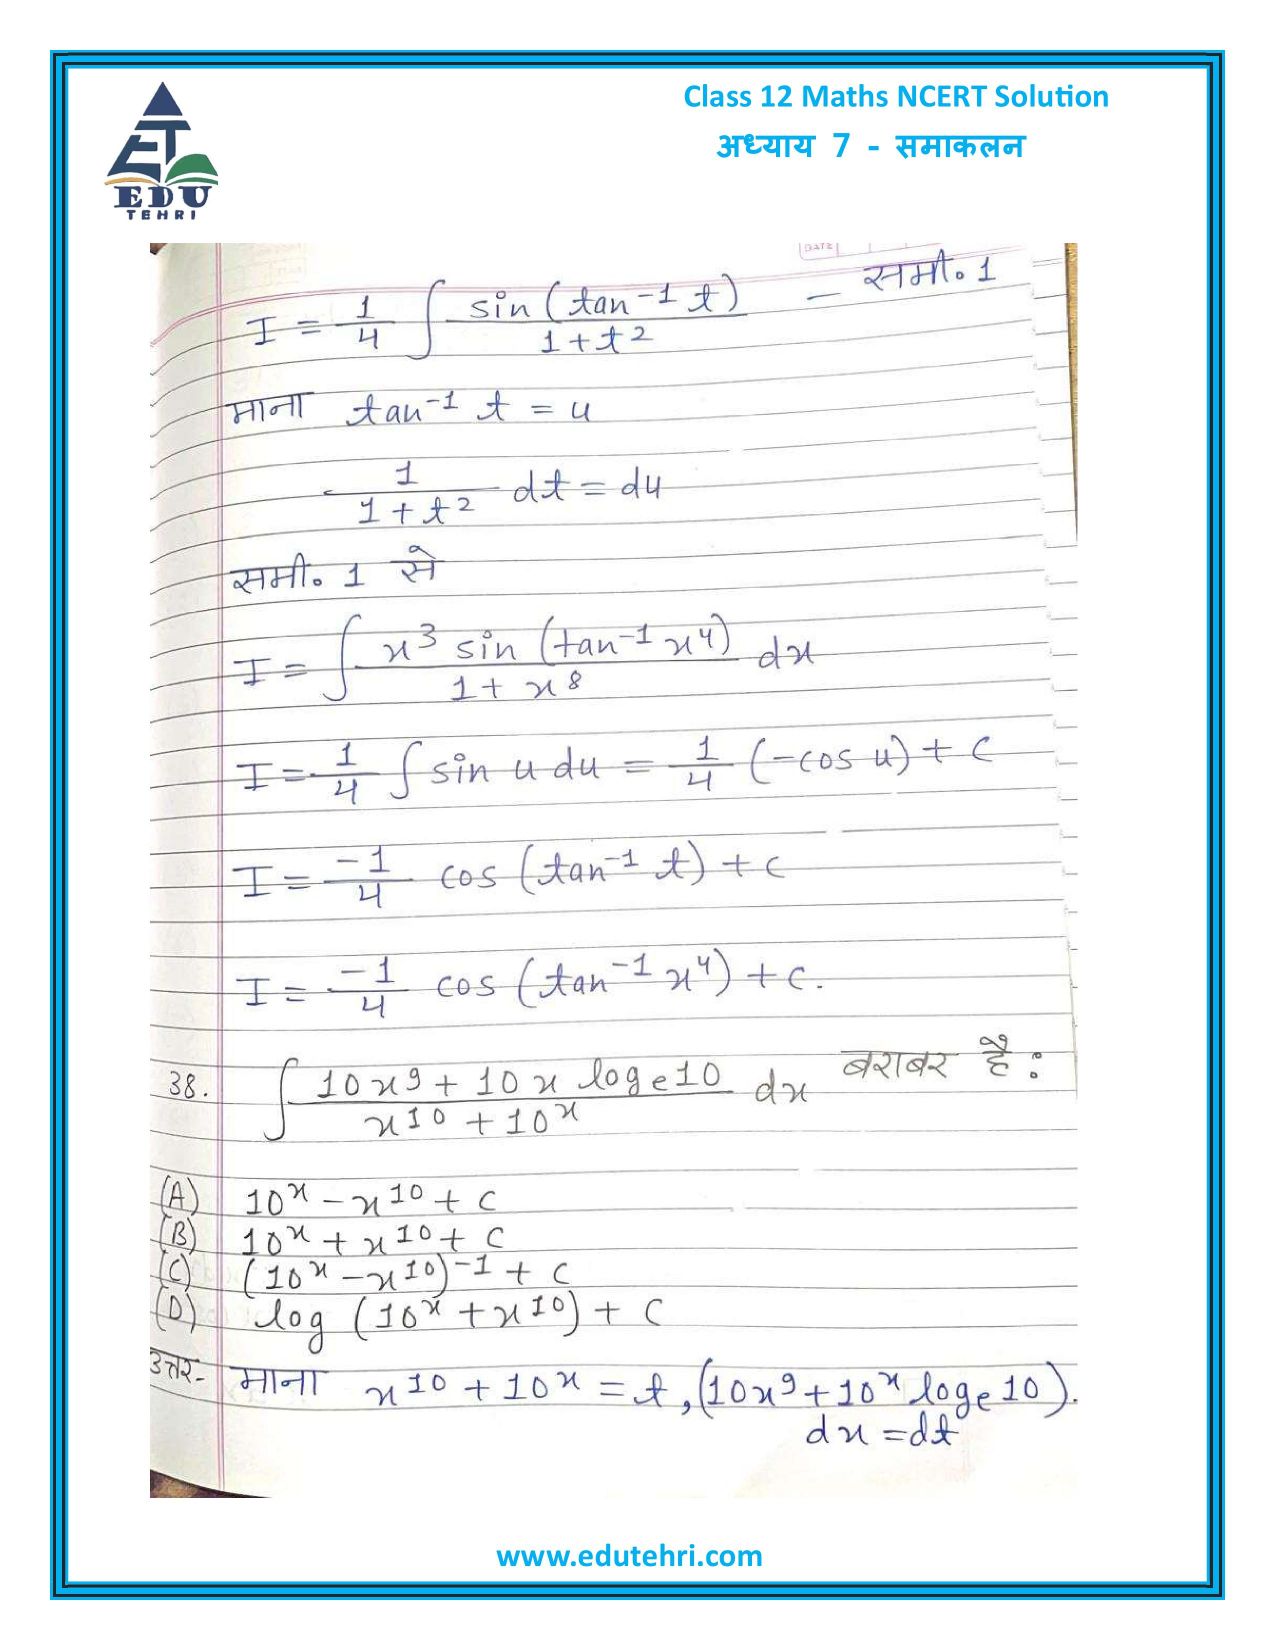 Class 12 Maths NCERT Solution
अध्याय 7 - समाकलन
EDU
TEHRI
DATE
I = 1/4 ∫ sin (tan⁻¹ t) / 1 + t² — समी. 1
माना tan⁻¹ t = u
1 / 1 + t² dt = du
समी. 1 से
I = ∫ x³ sin (tan⁻¹ x⁴) / 1 + x⁸ dx
I = 1/4 ∫ sin u du = 1/4 (-cos u) + c
I = -1/4 cos (tan⁻¹ t) + c
I = -1/4 cos (tan⁻¹ x⁴) + c.
38. ∫ 10x⁹ + 10x logₑ10 / x¹⁰ + 10ˣ dx बराबर है :
(A) 10ˣ - x¹⁰ + c
(B) 10ˣ + x¹⁰ + c
(C) (10ˣ - x¹⁰)⁻¹ + c
(D) log (10ˣ + x¹⁰) + c
उत्तर- माना x¹⁰ + 10ˣ = t, (10x⁹ + 10ˣ logₑ10).
dx = dt
www.edutehri.com